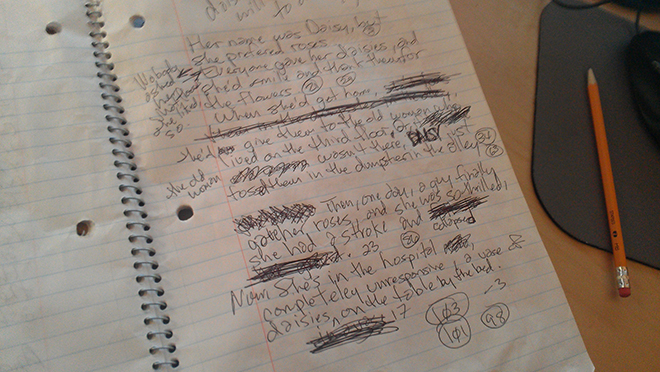 Her name was Daisy, but
she prefered roses.
Nobody
asked
her
she liked
so
Everyone gave her daisies, and
she'd smile and thank them for
the flowers. 21
When she'd got home,
she'd give them to the old woman who
lived on the third floor.
the old
woman
wasn't there, DAISY just
tossed them in the dumpster in the alley.
Then, one day, a guy finally
gave her roses, and she was so thrilled,
she had a stroke and collapsed
23
Now she's in the hospital,
completeley unresponsive, a vase of
daisies on the table by the bed.
17
-3
103
101
98